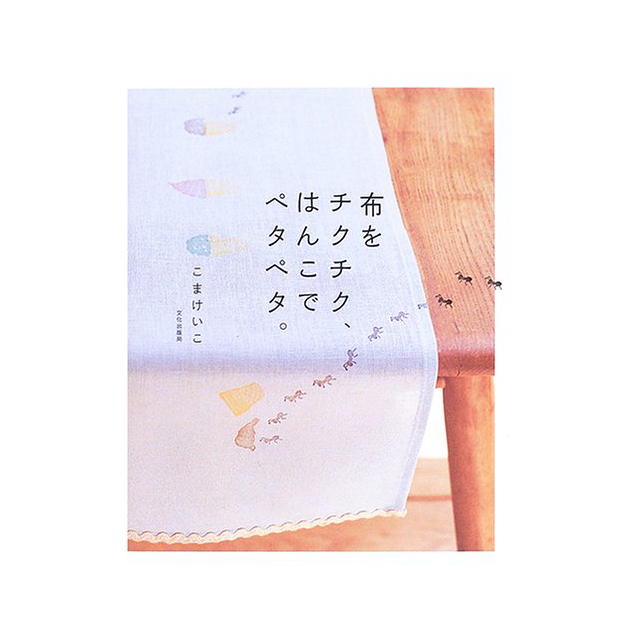 布を
チクチク、
はんこで
ペタペタ。
こまけいこ
文化出版局